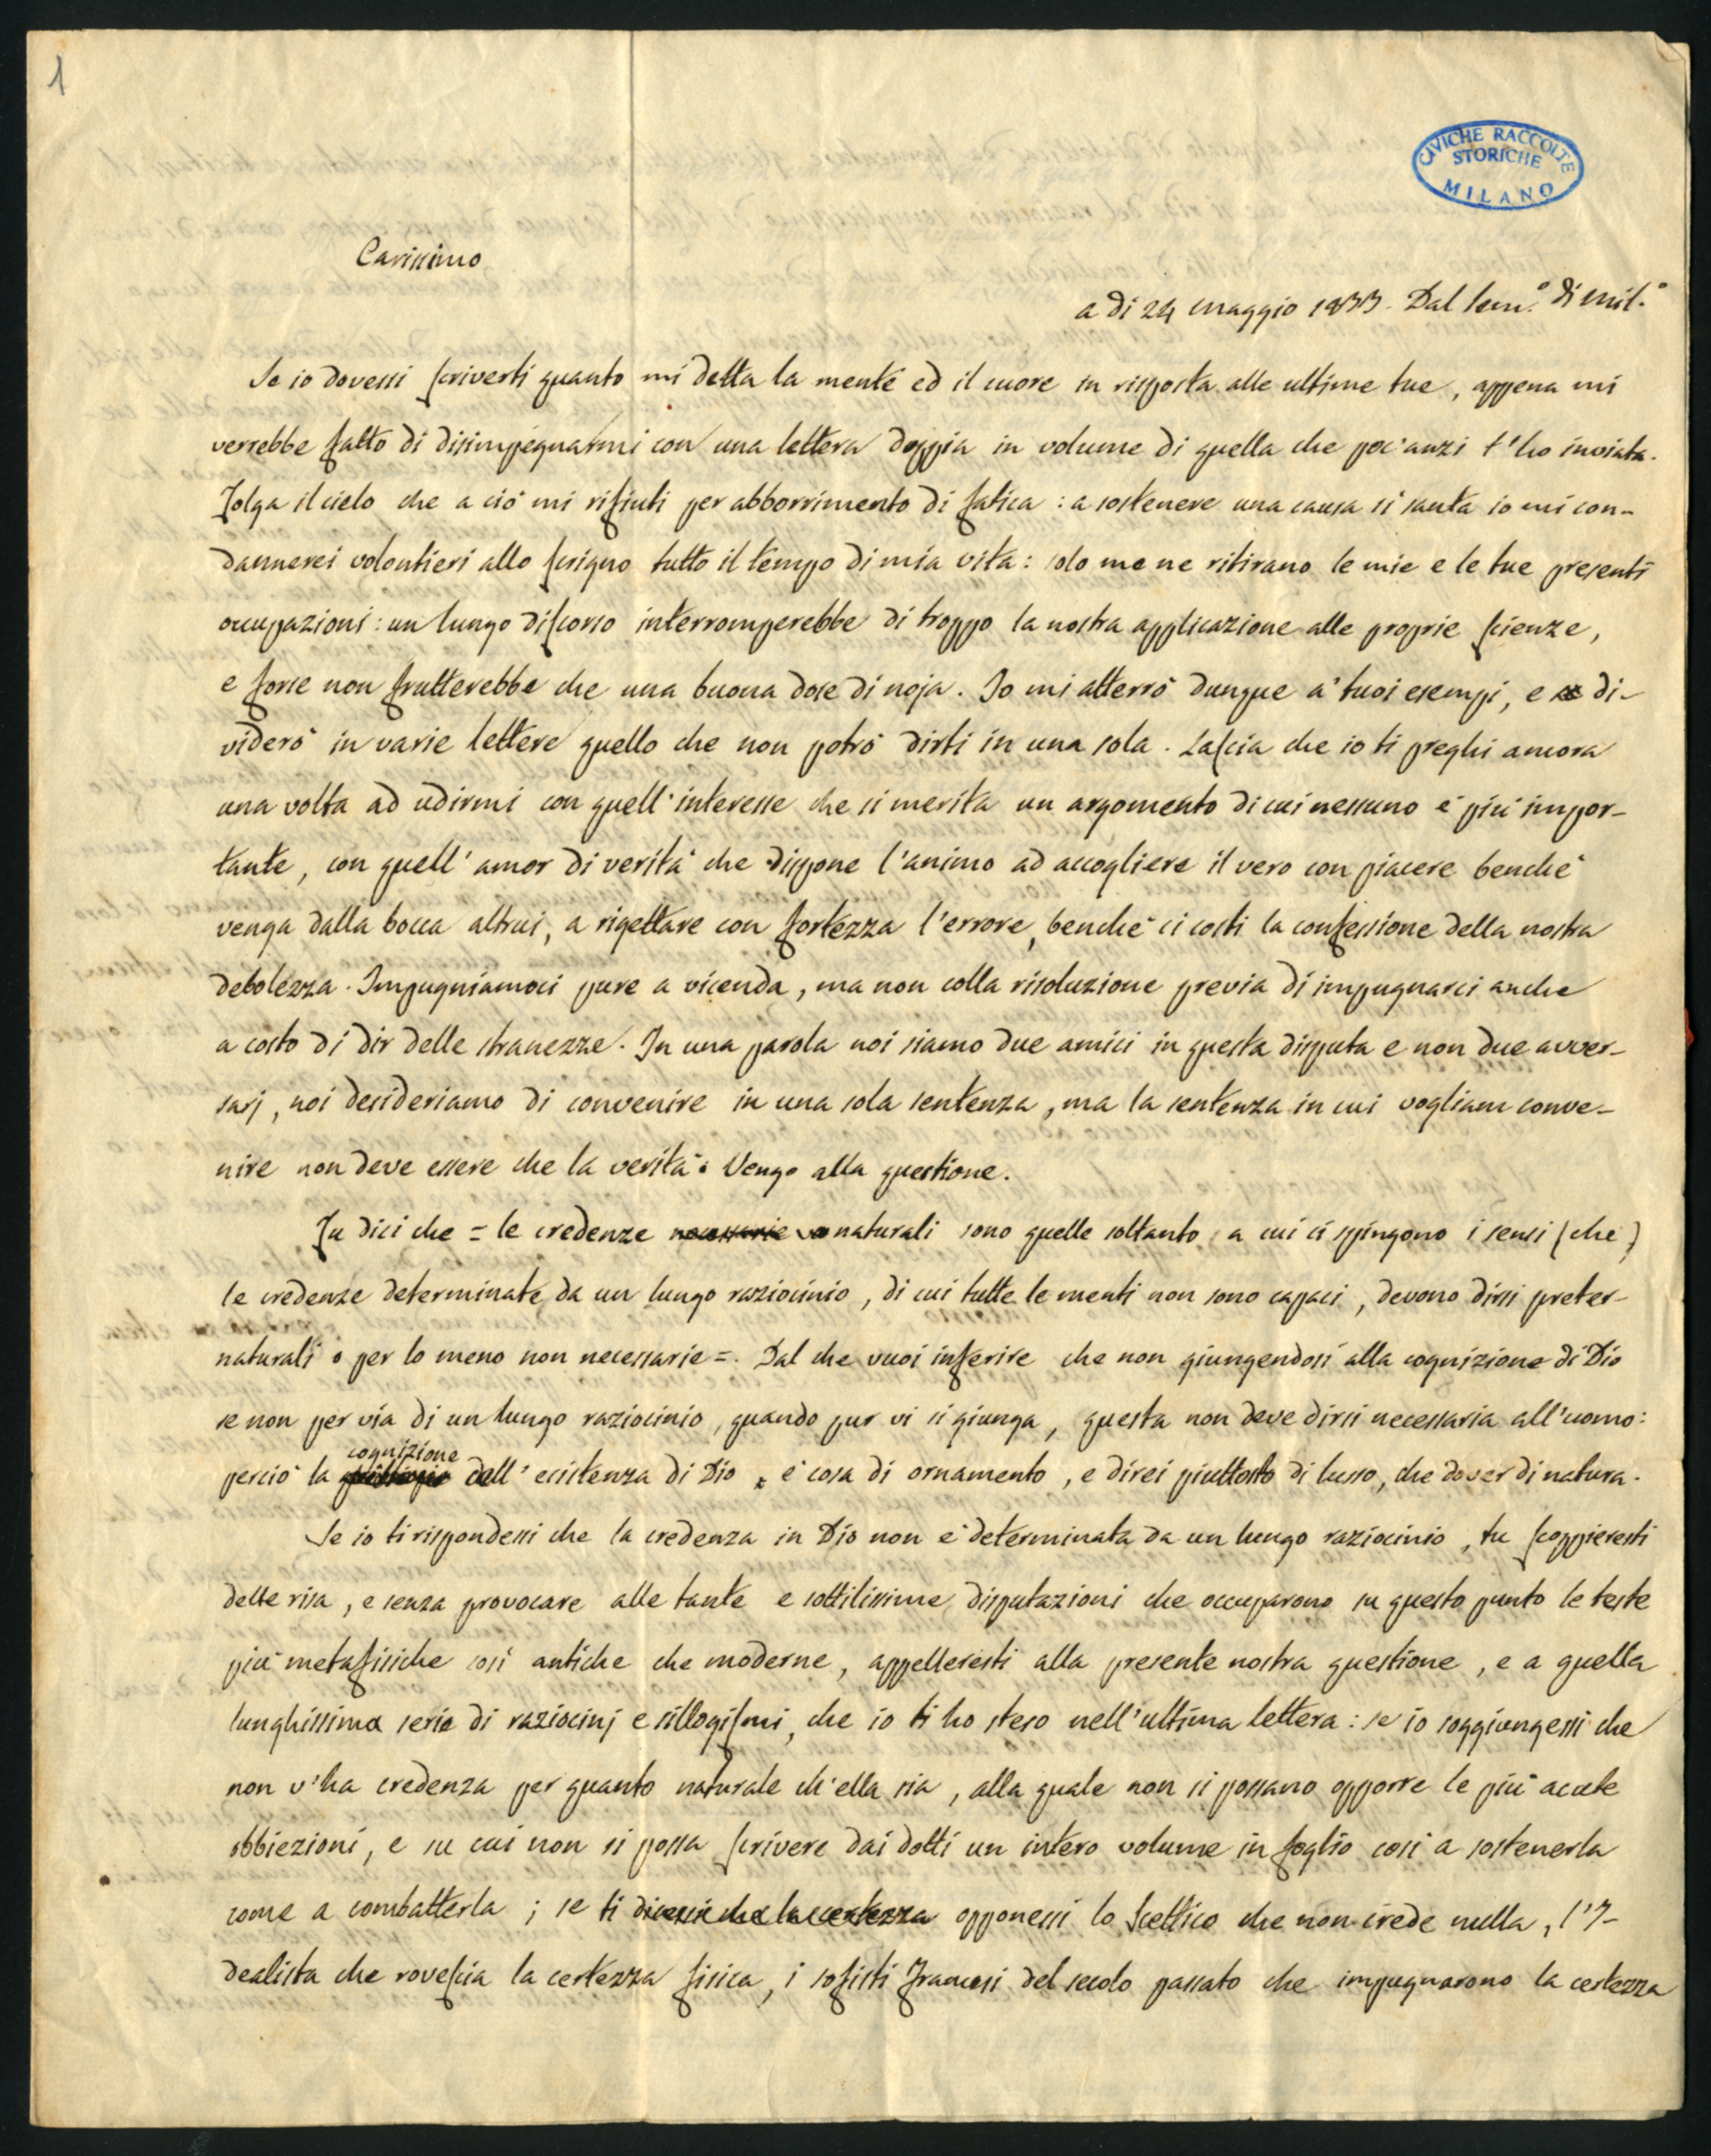 1
CIVICHE RACCOLTE
STORICHE
MILANO
Carissimo
a dì 24 maggio 1833. Dal Sem.º di Mil.º
Se io dovessi scriverti quanto mi detta la mente ed il cuore in risposta alle ultime tue, appena mi
verrebbe fatto di disimpegnarmi con una lettera doppia in volume di quella che poc'anzi t'ho inviata.
Tolga il cielo che a ciò mi rifiuti per abborrimento di fatica: a sostenere una causa sì santa io mi con-
dannerei volontieri allo scrigno tutto il tempo di mia vita: solo me ne ritirano le mie e le tue presenti
occupazioni: un lungo discorso interromperebbe di troppo la nostra applicazione alle proprie scienze,
e forse non frutterebbe che una buona dose di noja. Io mi atterrò dunque a' tuoi esempi, e di-
viderò in varie lettere quello che non potrò dirti in una sola. Lascia che io ti preghi ancora
una volta ad udirmi con quell'interesse che si merita un argomento di cui nessuno è più impor-
tante, con quell'amor di verità che dispone l'animo ad accogliere il vero con piacere benchè
venga dalla bocca altrui, a rigettare con fortezza l'errore, benchè ci costi la confessione della nostra
debolezza. Impugniamoci pure a vicenda, ma non colla risoluzione previa di impugnarci anche
a costo di dir delle stranezze. In una parola noi siamo due amici in questa disputa e non due avver-
sarj, noi desideriamo di convenire in una sola sentenza, ma la sentenza in cui vogliam conve-
nire non deve essere che la verità. Vengo alla questione.
Tu dici che = le credenze necessarie naturali sono quelle soltanto a cui ci spingono i sensi (che)
le credenze determinate da un lungo raziocinio, di cui tutte le menti non sono capaci, devono dirsi preter-
naturali o per lo meno non necessarie =. Dal che vuoi inferire che non giungendosi alla cognizione di Dio
se non per via di un lungo raziocinio, quando pur vi si giunga, questa non deve dirsi necessaria all'uomo:
perciò la cognizione dell'esistenza di Dio è cosa di ornamento, e direi piuttosto di lusso, che dover di natura.
Se io ti rispondessi che la credenza in Dio non è determinata da un lungo raziocinio, tu scoppieresti
delle risa, e senza provocare alle tante e sottilissime disputazioni che occuparono su questo punto le teste
più metafisiche così antiche che moderne, appelleresti alla presente nostra questione, e a quella
lunghissima serie di raziocinj e sillogismi, che io ti ho steso nell'ultima lettera: se io soggiungessi che
non v'ha credenza per quanto naturale ch'ella sia, alla quale non si possano opporre le più acute
obbiezioni, e su cui non si possa scrivere dai dotti un intero volume in foglio così a sostenerla
come a combatterla; se ti dicessi che la certezza opponessi lo Scettico che non crede nulla, l'I-
dealista che rovescia la certezza fisica, i sofisti Francesi del secolo passato che impugnarono la certezza